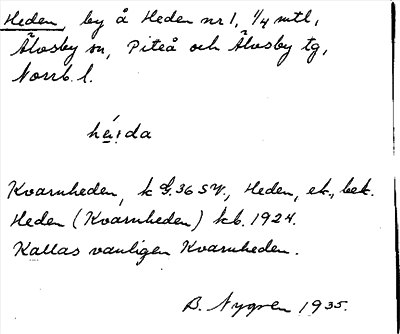 Heden, by å Heden nr 1, 1/4 mtl,
Älvsby sn, Piteå och Älvsby tg,
Norrb. l.
hé̱ːda
Kvarnheden, k G.36 SV., Heden, ek., bek.
Heden (Kvarnheden) kb. 1924.
Kallas vanligen Kvarnheden.
B. Nygren 1935.